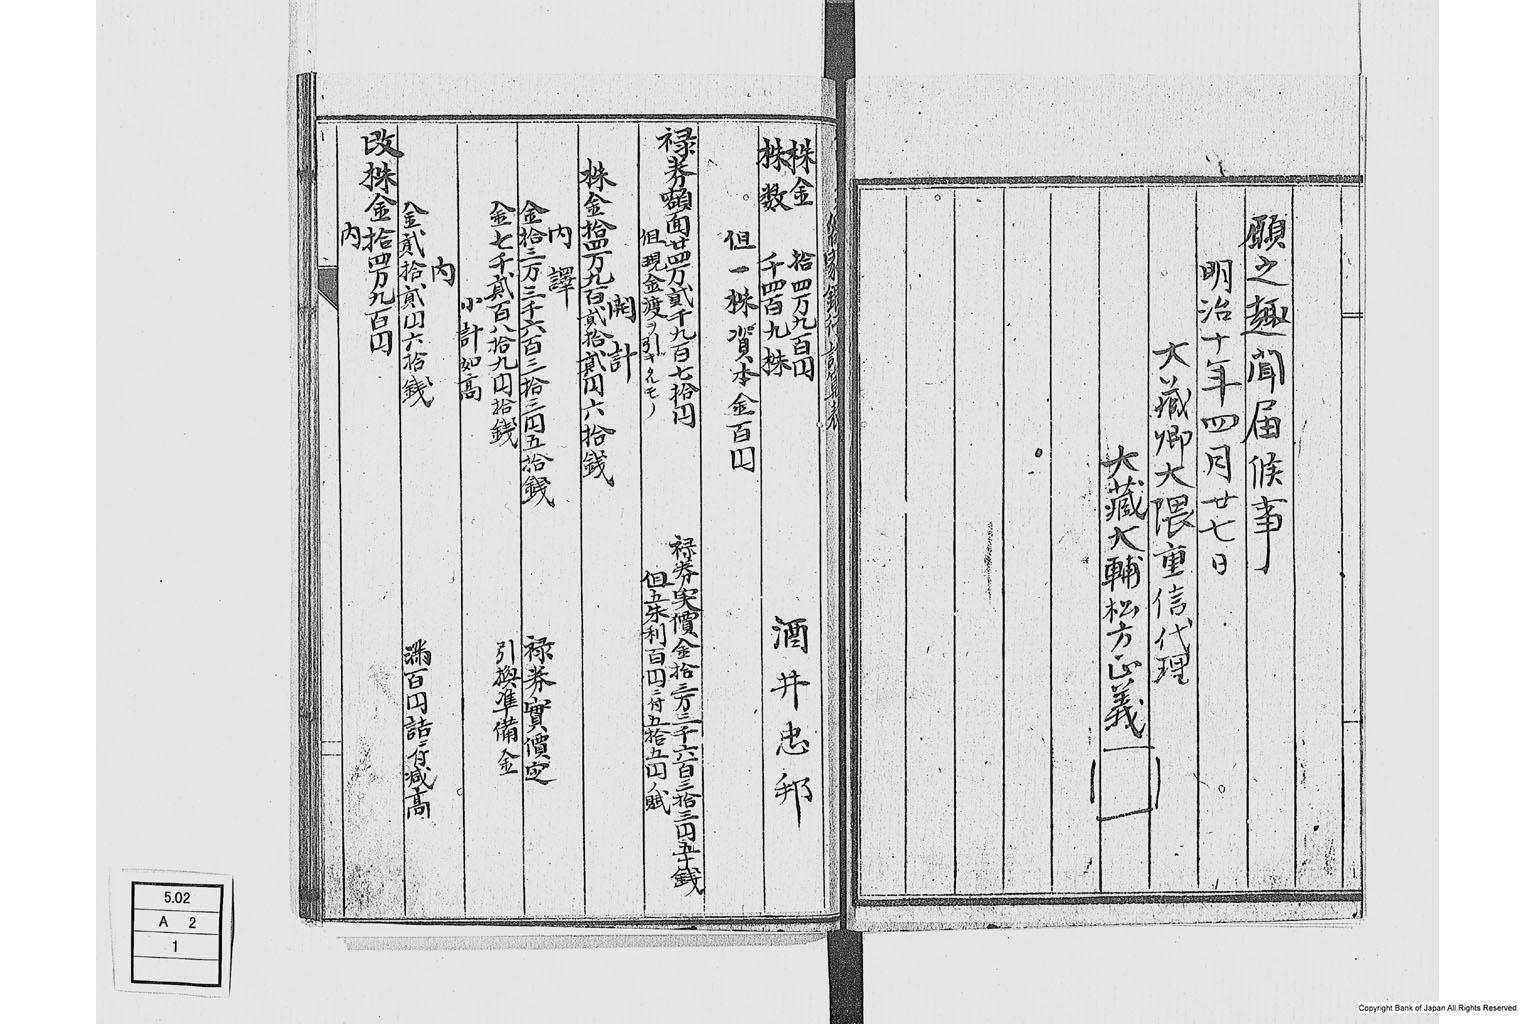 願之趣聞届候事
明治十年四月廿七日
大藏卿大隈重信代理
大藏大輔松方正義
株金 拾四万九百円
株数 千四百九株
酒井忠邦
但一株資本金百円
禄券額面廿四万貳千九百七拾円
禄券実價金拾三万三千六百三拾三円五十銭
但現金渡ヲ引キタルモノ
但五朱利百円ニ付五拾五円ノ賦
開計
株金拾四万九百貳拾貳円六拾銭
内譯
金拾三万三千六百三拾三円五拾銭
禄券實價定
金七千貳百八拾九円拾銭
引換準備金
小計如高
内
金貳拾貳円六拾銭
満百円詰ニ付減高
改株金拾四万九百円
内
5.02
A 2
1
Copyright Bank of Japan All Rights Reserved.